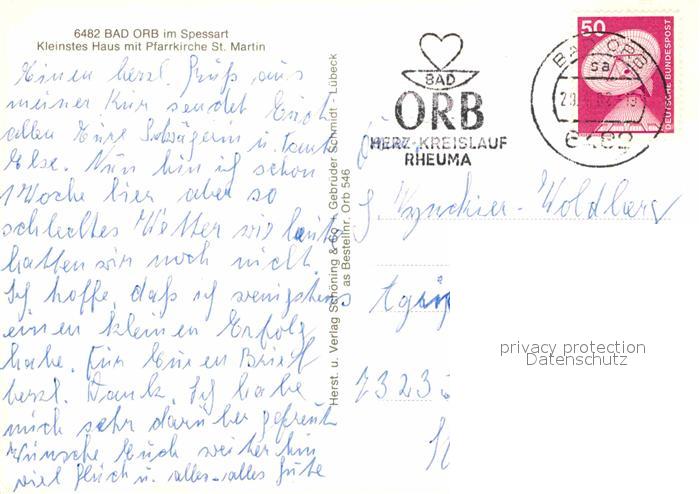 6482 BAD ORB im Spessart
Kleinstes Haus mit Pfarrkirche St. Martin
Einen herzl. Gruß aus
meiner Kur sendet Euch
allen Eure Schwägerin u. Tante
Else. Nun bin ich schon
1 Woche hier aber so
schlechtes Wetter wie heute
hatten wir noch nicht.
Ich hoffe, daß ich wenigstens
einen kleinen Erfolg
habe. Für Euren Brief
herzl. Dank. Ich habe
mich sehr darüber gefreut
Wünsche Euch weiterhin
viel Glück u. alles-alles Gute
Herst. u. Verlag Schöning & Co + Gebrüder Schmidt - Lübeck
as Bestellnr. Orb 546
BAD
ORB
HERZ-KREISLAUF
RHEUMA
BAD ORB
sa
6482
50
DEUTSCHE BUNDESPOST
7323
privacy protection
Datenschutz